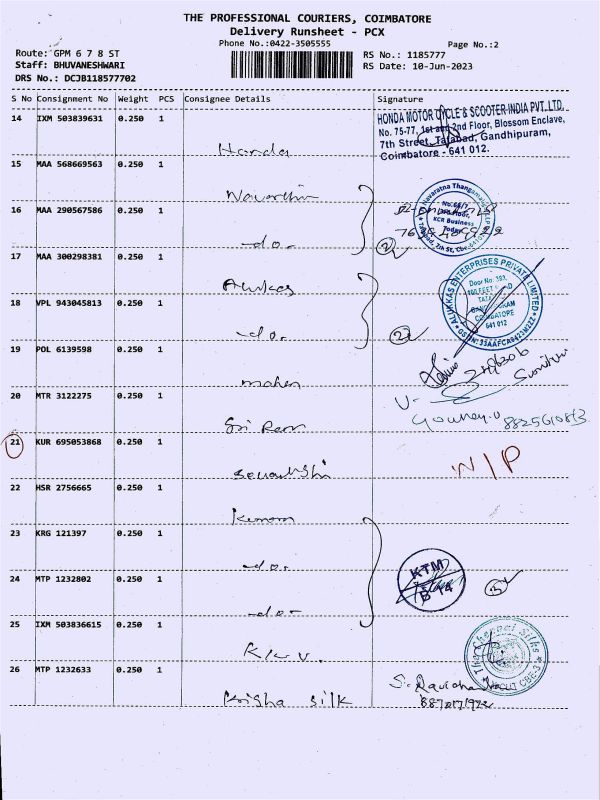 THE PROFESSIONAL COURIERS, COIMBATORE
Delivery Runsheet - PCX
Phone No.:0422-3505555
Page No.:2
Route: GPM 6 7 8 ST
RS No.: 1185777
Staff: BHUVANESHWARI
RS Date: 10-Jun-2023
DRS No.: DCJB118577702
S No Consignment No Weight PCS Consignee Details Signature
14 IXM 503839631 0.250 1
Honda
HONDA MOTOR CYCLE & SCOOTER INDIA PVT. LTD.
No. 75-77, 1st and 2nd Floor, Blossom Enclave,
7th Street, Tatabad, Gandhipuram,
Coimbatore - 641 012.
15 MAA 568669563 0.250 1
16 MAA 290567586 0.250 1
-do-
2
17 MAA 300298381 0.250 1
Alukas
ALUKKAS ENTERPRISES PRIVATE LIMITED
Door No. 593,
100 FEET ROAD
COIMBATORE
641 012
18 VPL 943045813 0.250 1
-do-
2
19 POL 6139598 0.250 1
mahen
20 MTR 3122275 0.250 1
Sri Ram
21 KUR 695053868 0.250 1
N/P
22 HSR 2756665 0.250 1
23 KRG 121397 0.250 1
-do-
KTM
24 MTP 1232802 0.250 1
-do-
3
25 IXM 503836615 0.250 1
The Chennai Silks
CBE-3
26 MTP 1232633 0.250 1
Krisha silk